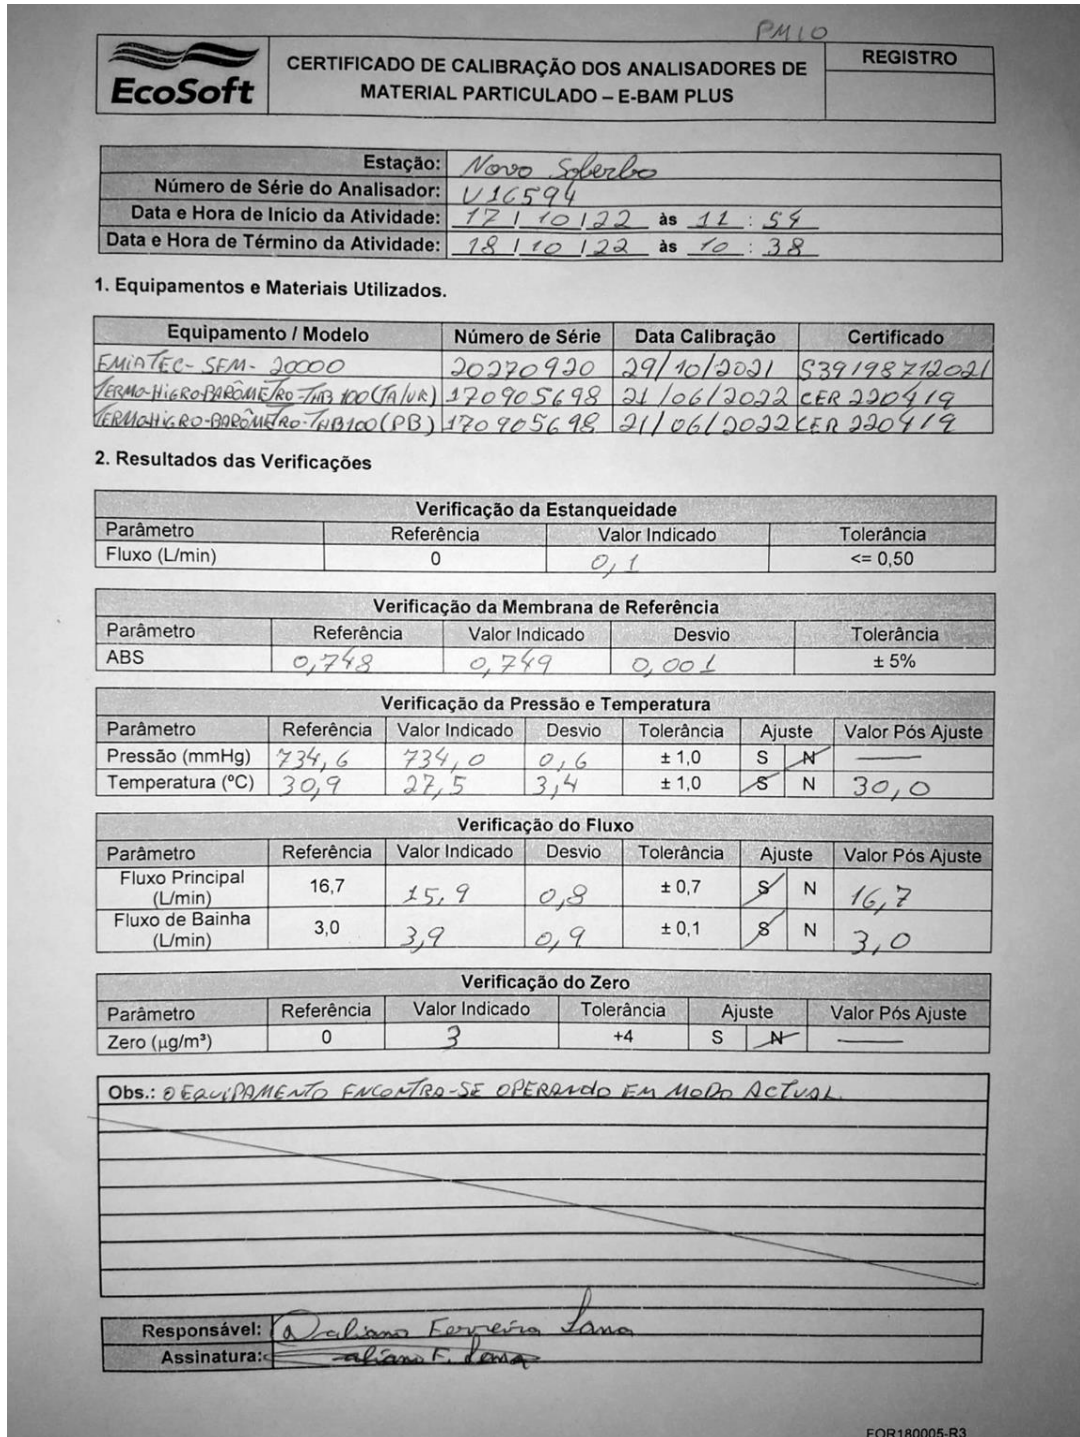 PM10
EcoSoft
CERTIFICADO DE CALIBRAÇÃO DOS ANALISADORES DE
MATERIAL PARTICULADO – E-BAM PLUS
REGISTRO
Estação: Novo Soberbo
Número de Série do Analisador: U16594
Data e Hora de Início da Atividade: 17/10/22 às 11:54
Data e Hora de Término da Atividade: 18/10/22 às 10:38
1. Equipamentos e Materiais Utilizados.
Equipamento / Modelo Número de Série Data Calibração Certificado
EMIATEC-SEM-20000 20270920 29/10/2021 S39198712021
TERMO-HIGRO-BARÔMETRO-THB 100 (TA/UR) 170905698 21/06/2022 CER 220419
TERMOHIGRO-BARÔMETRO-THB100 (PB) 170905698 21/06/2022 CER 220419
2. Resultados das Verificações
Verificação da Estanqueidade
Parâmetro Referência Valor Indicado Tolerância
Fluxo (L/min) 0 0,1 <= 0,50
Verificação da Membrana de Referência
Parâmetro Referência Valor Indicado Desvio Tolerância
ABS 0,748 0,749 0,001 ± 5%
Verificação da Pressão e Temperatura
Parâmetro Referência Valor Indicado Desvio Tolerância Ajuste Valor Pós Ajuste
Pressão (mmHg) 734,6 734,0 0,6 ± 1,0 S N —
Temperatura (ºC) 30,9 27,5 3,4 ± 1,0 S N 30,0
Verificação do Fluxo
Parâmetro Referência Valor Indicado Desvio Tolerância Ajuste Valor Pós Ajuste
Fluxo Principal
(L/min) 16,7 15,9 0,8 ± 0,7 S N 16,7
Fluxo de Bainha
(L/min) 3,0 3,9 0,9 ± 0,1 S N 3,0
Verificação do Zero
Parâmetro Referência Valor Indicado Tolerância Ajuste Valor Pós Ajuste
Zero (µg/m³) 0 3 +4 S N —
Obs.: O EQUIPAMENTO ENCONTRA-SE OPERANDO EM MODO ACTUAL.
Responsável: Ferreira
Assinatura: F.
FOR180005-R3